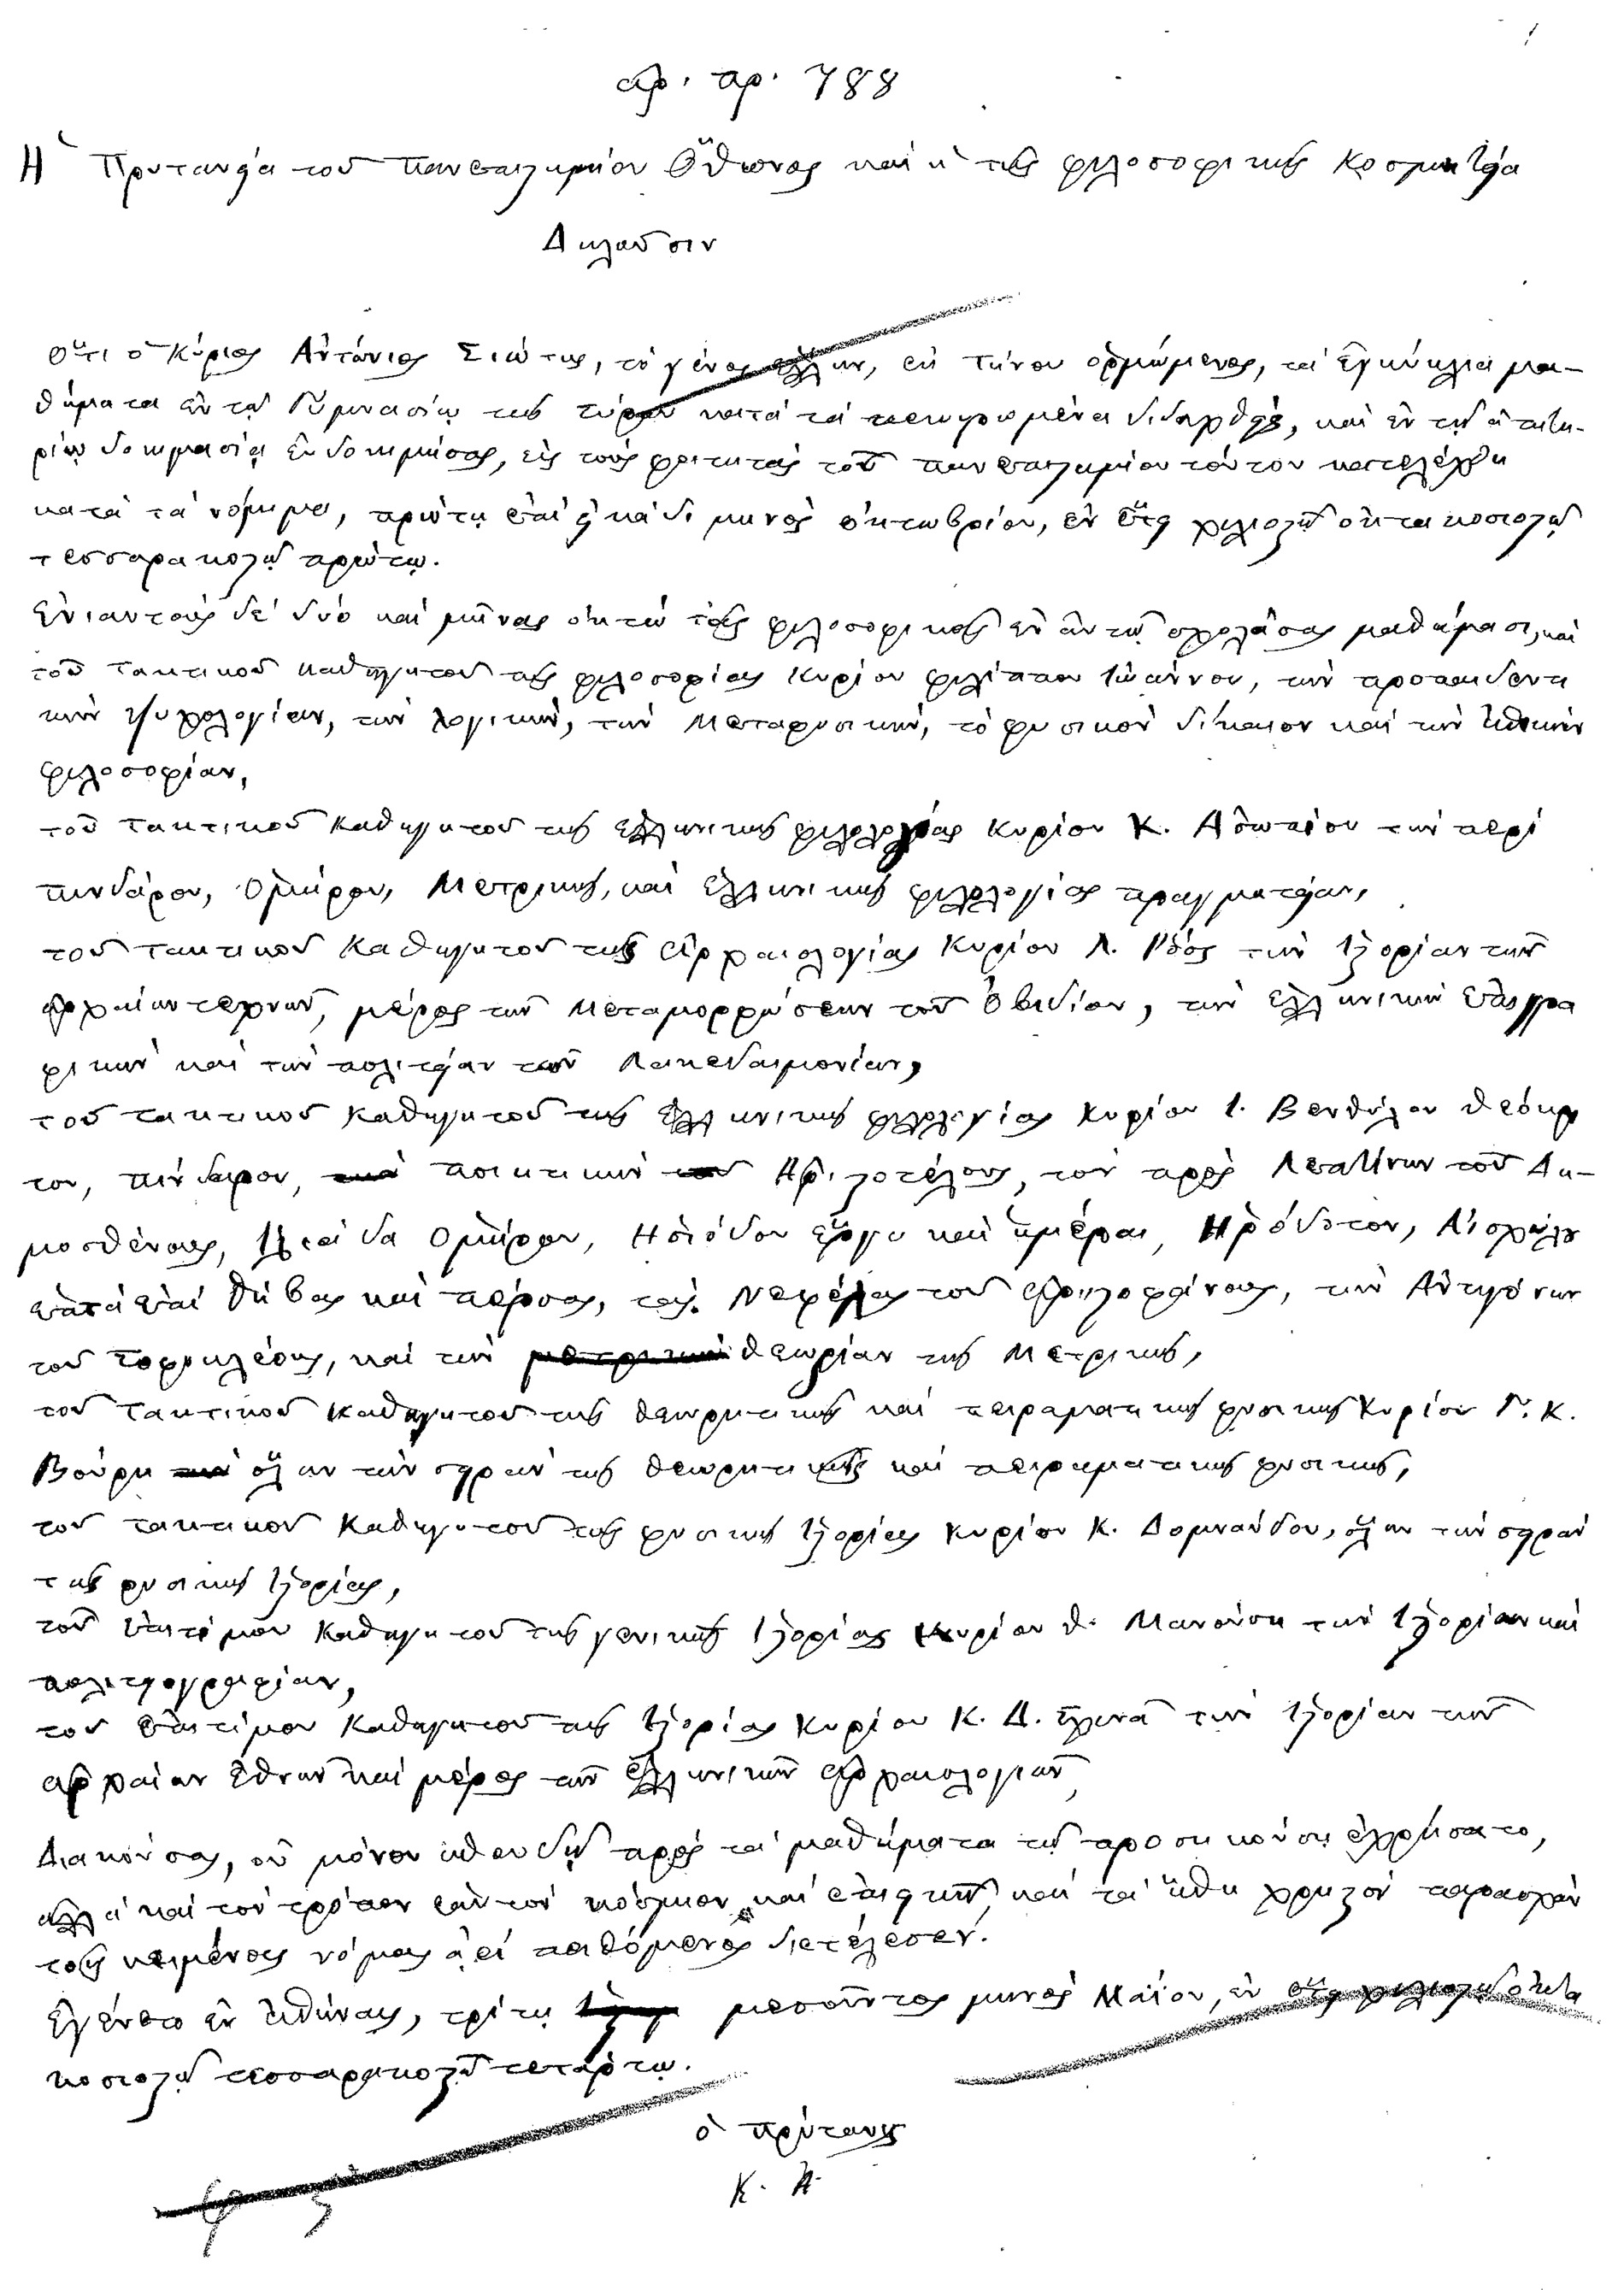 ἀρ. πρ. 788
Ἡ Πρυτανεία τοῦ Πανεπιστημίου Ὄθωνος καὶ ἡ τῆς φιλοσοφικῆς Κοσμητεία
Δηλοῦσιν
Ὅτι ὁ Κύριος Ἀντώνιος Σιώτης, τὸ γένος ἕλλην, ἐκ Τήνου ὁρμώμενος, τὰ ἐγκύκλια μα-
θήματα ἐν τῷ Γυμνασίῳ τῆς Σύρου κατὰ τὰ νενομισμένα διδαχθεὶς, καὶ ἐν τῇ εἰσιτη-
ρίῳ δοκιμασίᾳ εὐδοκιμήσας, εἰς τοὺς φοιτητὰς τοῦ πανεπιστημίου τούτου κατελέχθη
κατὰ τὰ νόμιμα, πρώτῃ ἐπὶ εἰκάδι μηνὸς ὀκτωβρίου, ἐν ἔτει χιλιοστῷ ὀκτακοσιοστῷ
τεσσαρακοστῷ πρώτῳ.
Ἐνιαυτοὺς δὲ δύο καὶ μῆνας ὀκτὼ τοῖς φιλοσοφικοῖς ἐν αὐτῷ σχολάσας μαθήμασι, καὶ
τοῦ τακτικοῦ καθηγητοῦ τῆς φιλοσοφίας Κυρίου Φιλίππου Ἰωάννου, τὴν προπαιδευτι
κὴν ψυχολογίαν, τὴν λογικὴν, τὴν Μεταφυσικὴν, τὸ φυσικὸν δίκαιον καὶ τὴν ἠθικὴν
φιλοσοφίαν,
τοῦ τακτικοῦ Καθηγητοῦ τῆς ἑλληνικῆς φιλολογίας Κυρίου Κ. Ἀσωπίου τὴν περὶ
Πινδάρου, Ὁμήρου, Μετρικῆς, καὶ ἑλληνικῆς φιλολογίας πραγματείαν,
τοῦ τακτικοῦ Καθηγητοῦ τῆς ἀρχαιολογίας Κυρίου Λ. Ῥὸς τὴν ἱστορίαν τῶν
ἀρχαίων τεχνῶν, μέρος τῶν Μεταμορφώσεων τοῦ Ὀβιδίου, τὴν ἑλληνικὴν ἐπιγρα
φικὴν καὶ τὴν πολιτείαν τῶν Λακεδαιμονίων,
τοῦ τακτικοῦ Καθηγητοῦ τῆς ἑλληνικῆς φιλολογίας Κυρίου Ι. Βενθύλου Θεόκρι
τον, Πίνδαρον, ποιητικὴν Ἀριστοτέλους, τὸν πρὸς Λεπτίνην τοῦ Δη-
μοσθένους, Ἰλιάδα Ὁμήρου, Ἡσιόδου ἔργα καὶ ἡμέραι, Ἡρόδοτον, Αἰσχύλου
ἑπτὰ ἐπὶ Θήβας καὶ πέρσας, τὰς Νεφέλας τοῦ ἀριστοφάνους, τὴν Ἀντιγόνην
τοῦ Σοφοκλέους, καὶ τὴν θεωρίαν τῆς Μετρικῆς,
τοῦ τακτικοῦ Καθηγητοῦ τῆς θεωρητικῆς καὶ πειραματικῆς φυσικῆς Κυρίου Γ. Κ.
Βούρη ὅλην τὴν σειρὰν τῆς θεωρητικῆς καὶ πειραματικῆς φυσικῆς,
τοῦ τακτικοῦ Καθηγητοῦ τῆς φυσικῆς ἱστορίας Κυρίου Κ. Δομνάνδου, ὅλην τὴν σειρὰν
τῆς φυσικῆς ἱστορίας,
τοῦ ἐπιτίμου Καθηγητοῦ τῆς γενικῆς ἱστορίας Κυρίου Θ. Μανούση τὴν ἱστορίαν καὶ
πολιτειογραφίαν,
τοῦ ἐπιτίμου Καθηγητοῦ τῆς ἱστορίας Κυρίου Κ. Δ. Σχινᾶ τὴν ἱστορίαν τῶν
ἀρχαίων ἐθνῶν καὶ μέρος τῶν ἑλληνικῶν ἀρχαιολογιῶν,
Διακούσας, οὐ μόνον σπουδῇ πρὸς τὰ μαθήματα τῇ προσηκούσῃ ἐχρήσατο,
ἀλλὰ καὶ τὸν τρόπον ἑαυτὸν κόσμιον καὶ ἐπιεικῆ καὶ τὰ ἤθη χρηστὸν παρασχὼν
τοῖς κειμένοις νόμοις ἀεὶ πειθόμενος διετέλεσεν.
Ἐγένετο ἐν Ἀθήναις, τρίτῃ μεσοῦντος μηνὸς Μαΐου, ἐν ἔτει χιλιοστῷ ὀκτα
κοσιοστῷ τεσσαρακοστῷ τετάρτῳ.
ὁ Πρύτανις
Κ. Α.